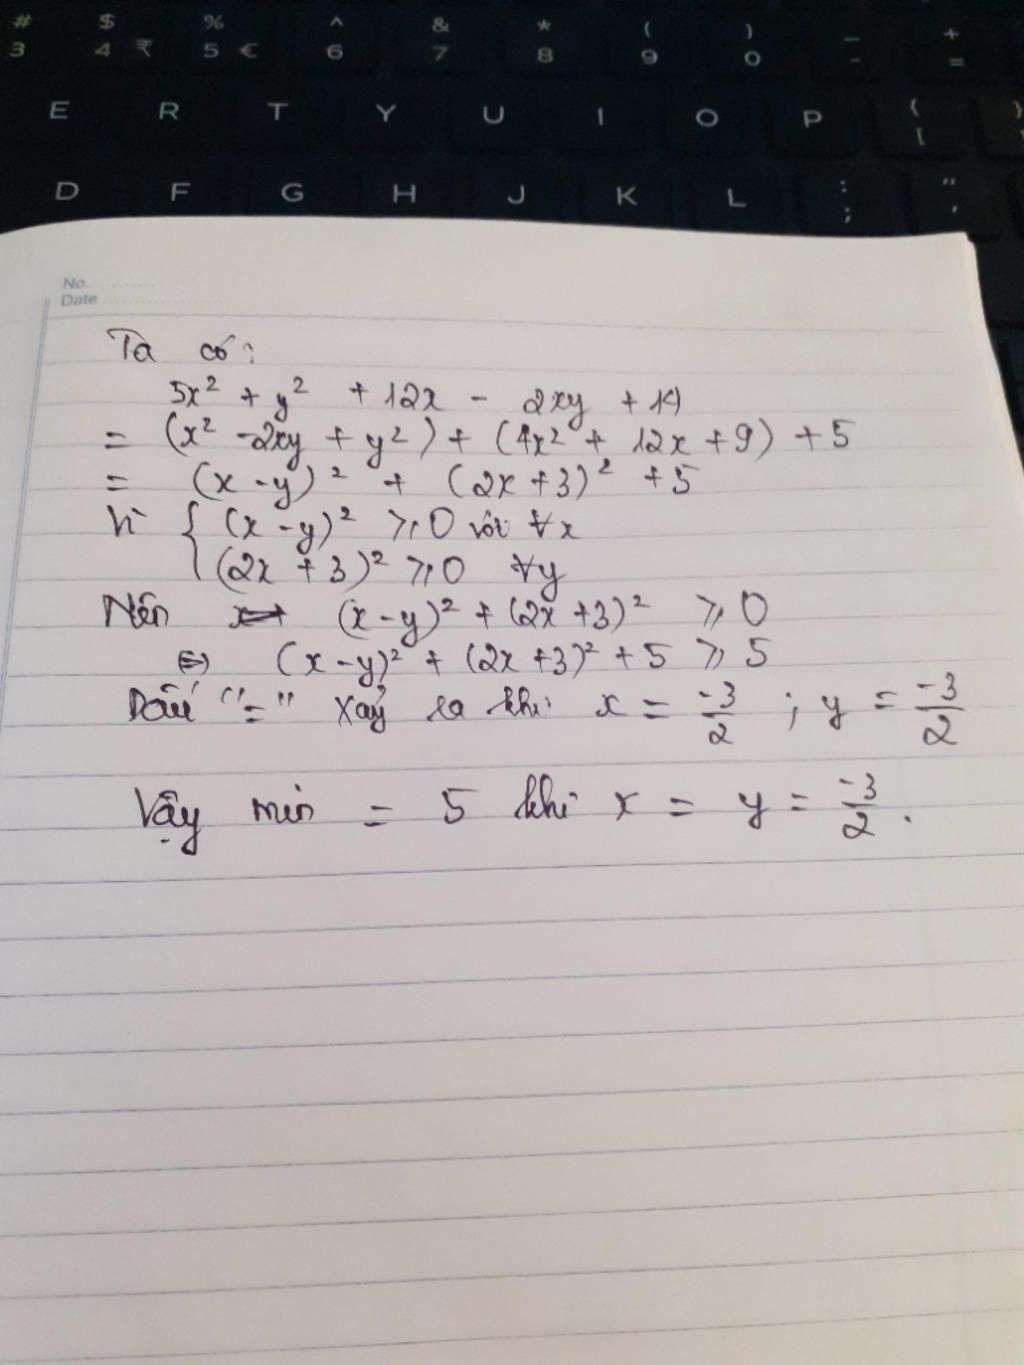 # $ % ^ & * ( ) _ +
3 4 ₹ 5 € 6 7 8 9 0 - =
E R T Y U I O P { }
[
D F G H J K L : "
; '
No.
Date
Ta có:
5x² + y² + 12x - 2xy + 14
= (x² - 2xy + y²) + (4x² + 12x + 9) + 5
= (x - y)² + (2x + 3)² + 5
Vì { (x - y)² ≥ 0 với ∀x
(2x + 3)² ≥ 0 ∀y
Nên (x - y)² + (2x + 3)² ≥ 0
⇔ (x - y)² + (2x + 3)² + 5 ≥ 5
Dấu "=" xảy ra khi x = -3/2 ; y = -3/2
Vậy min = 5 khi x = y = -3/2.